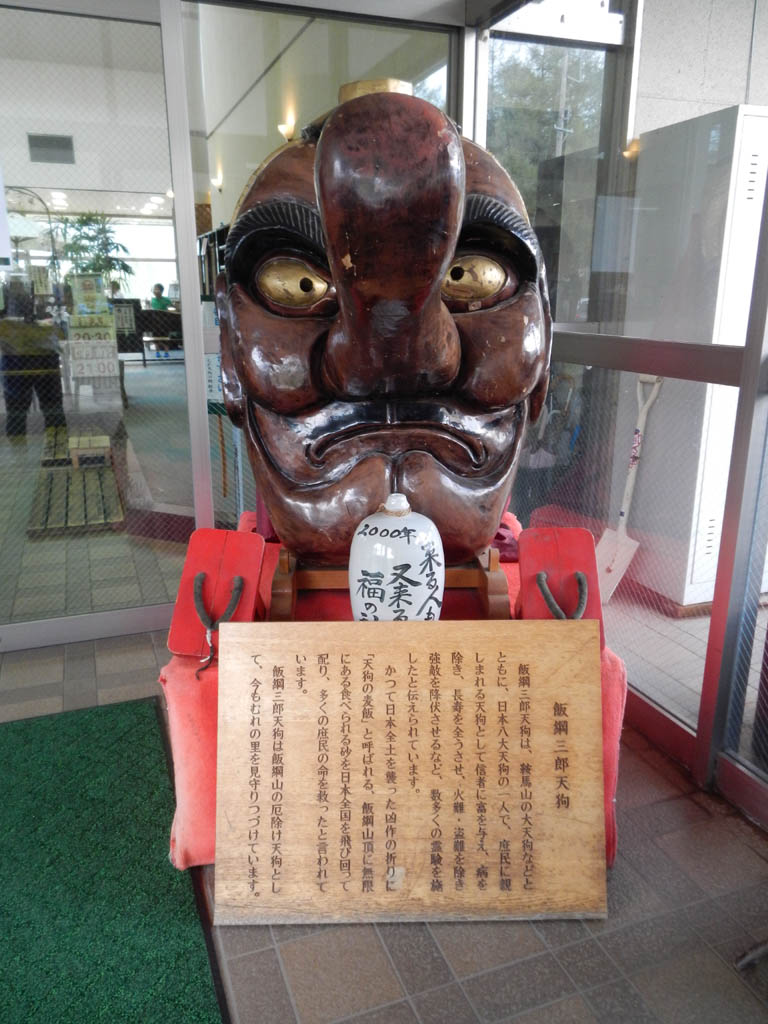 2000年
来る人も
又来る
福の
飯綱三郎天狗
飯綱三郎天狗は、鞍馬山の大天狗などと
ともに、日本八大天狗の一人で、庶民に親
しまれる天狗として信者に富を与え、病を
除き、長寿を全うさせ、火難・盗難を除き
強敵を降伏させるなど、数多くの霊験を施
したと伝えられています。
かつて日本全土を襲った凶作の折りに
「天狗の麦飯」と呼ばれる、飯綱山頂に無限
にある食べられる砂を日本全国を飛び回って
配り、多くの庶民の命を救ったと言われて
います。
飯綱三郎天狗は飯綱山の厄除け天狗とし
て、今もむれの里を見守りつづけています。
20:30
21:00